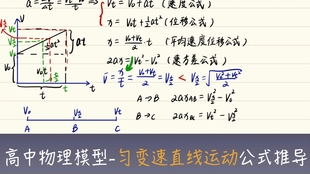 a = ⇒ Vt = V₀ + at (速度公式)
x = V₀t + ½at² (位移公式)
x = (V₀+Vt)/2 · t (平均速度位移公式)
2ax = Vt² - V₀² (速方差公式)
V̄ = x/t = (V₀+Vt)/2 = V_{t/2} < V_{x/2} = √((V₀²+Vt²)/2)
A→B 2ax_{AB} = V_{x/2}² - V₀²
B→C 2ax_{BC} = Vt² - V_{x/2}²
V
Vt
V₀
V₀t
½at²
at
t
V₀ V_{x/2} Vt
A B C
高中物理模型-匀变速直线运动公式推导